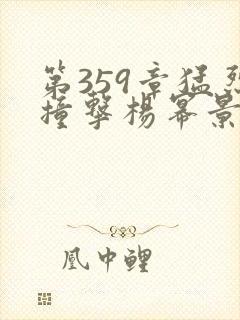 第359章猛烈
撞擊楊冪景
凰中鯉